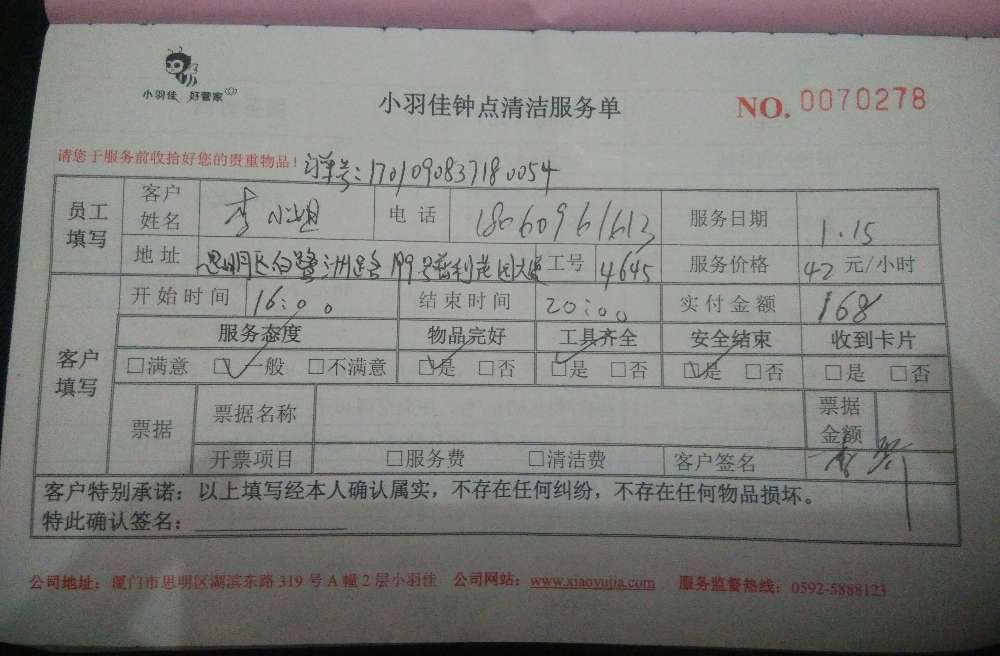 小羽佳 好管家
小羽佳钟点清洁服务单
NO. 0070278
请您于服务前收拾好您的贵重物品！
订单号：170109083718 0054
员工填写 客户姓名 李小姐 电话 18060961613 服务日期 1.15
地址 思明区白鹭洲路 工号 4645 服务价格 42 元/小时
客户填写 开始时间 16:00 结束时间 20:00 实付金额 168
服务态度 物品完好 工具齐全 安全结束 收到卡片
□满意 □一般 □不满意 □是 □否 □是 □否 □是 □否 □是 □否
票据 票据名称 票据金额
开票项目 □服务费 □清洁费 客户签名
客户特别承诺：以上填写经本人确认属实，不存在任何纠纷，不存在任何物品损坏。
特此确认签名：
公司地址：厦门市思明区湖滨东路 319 号 A 幢 2 层小羽佳 公司网站：www.xiaoyujia.com 服务监督热线：0592-5888123